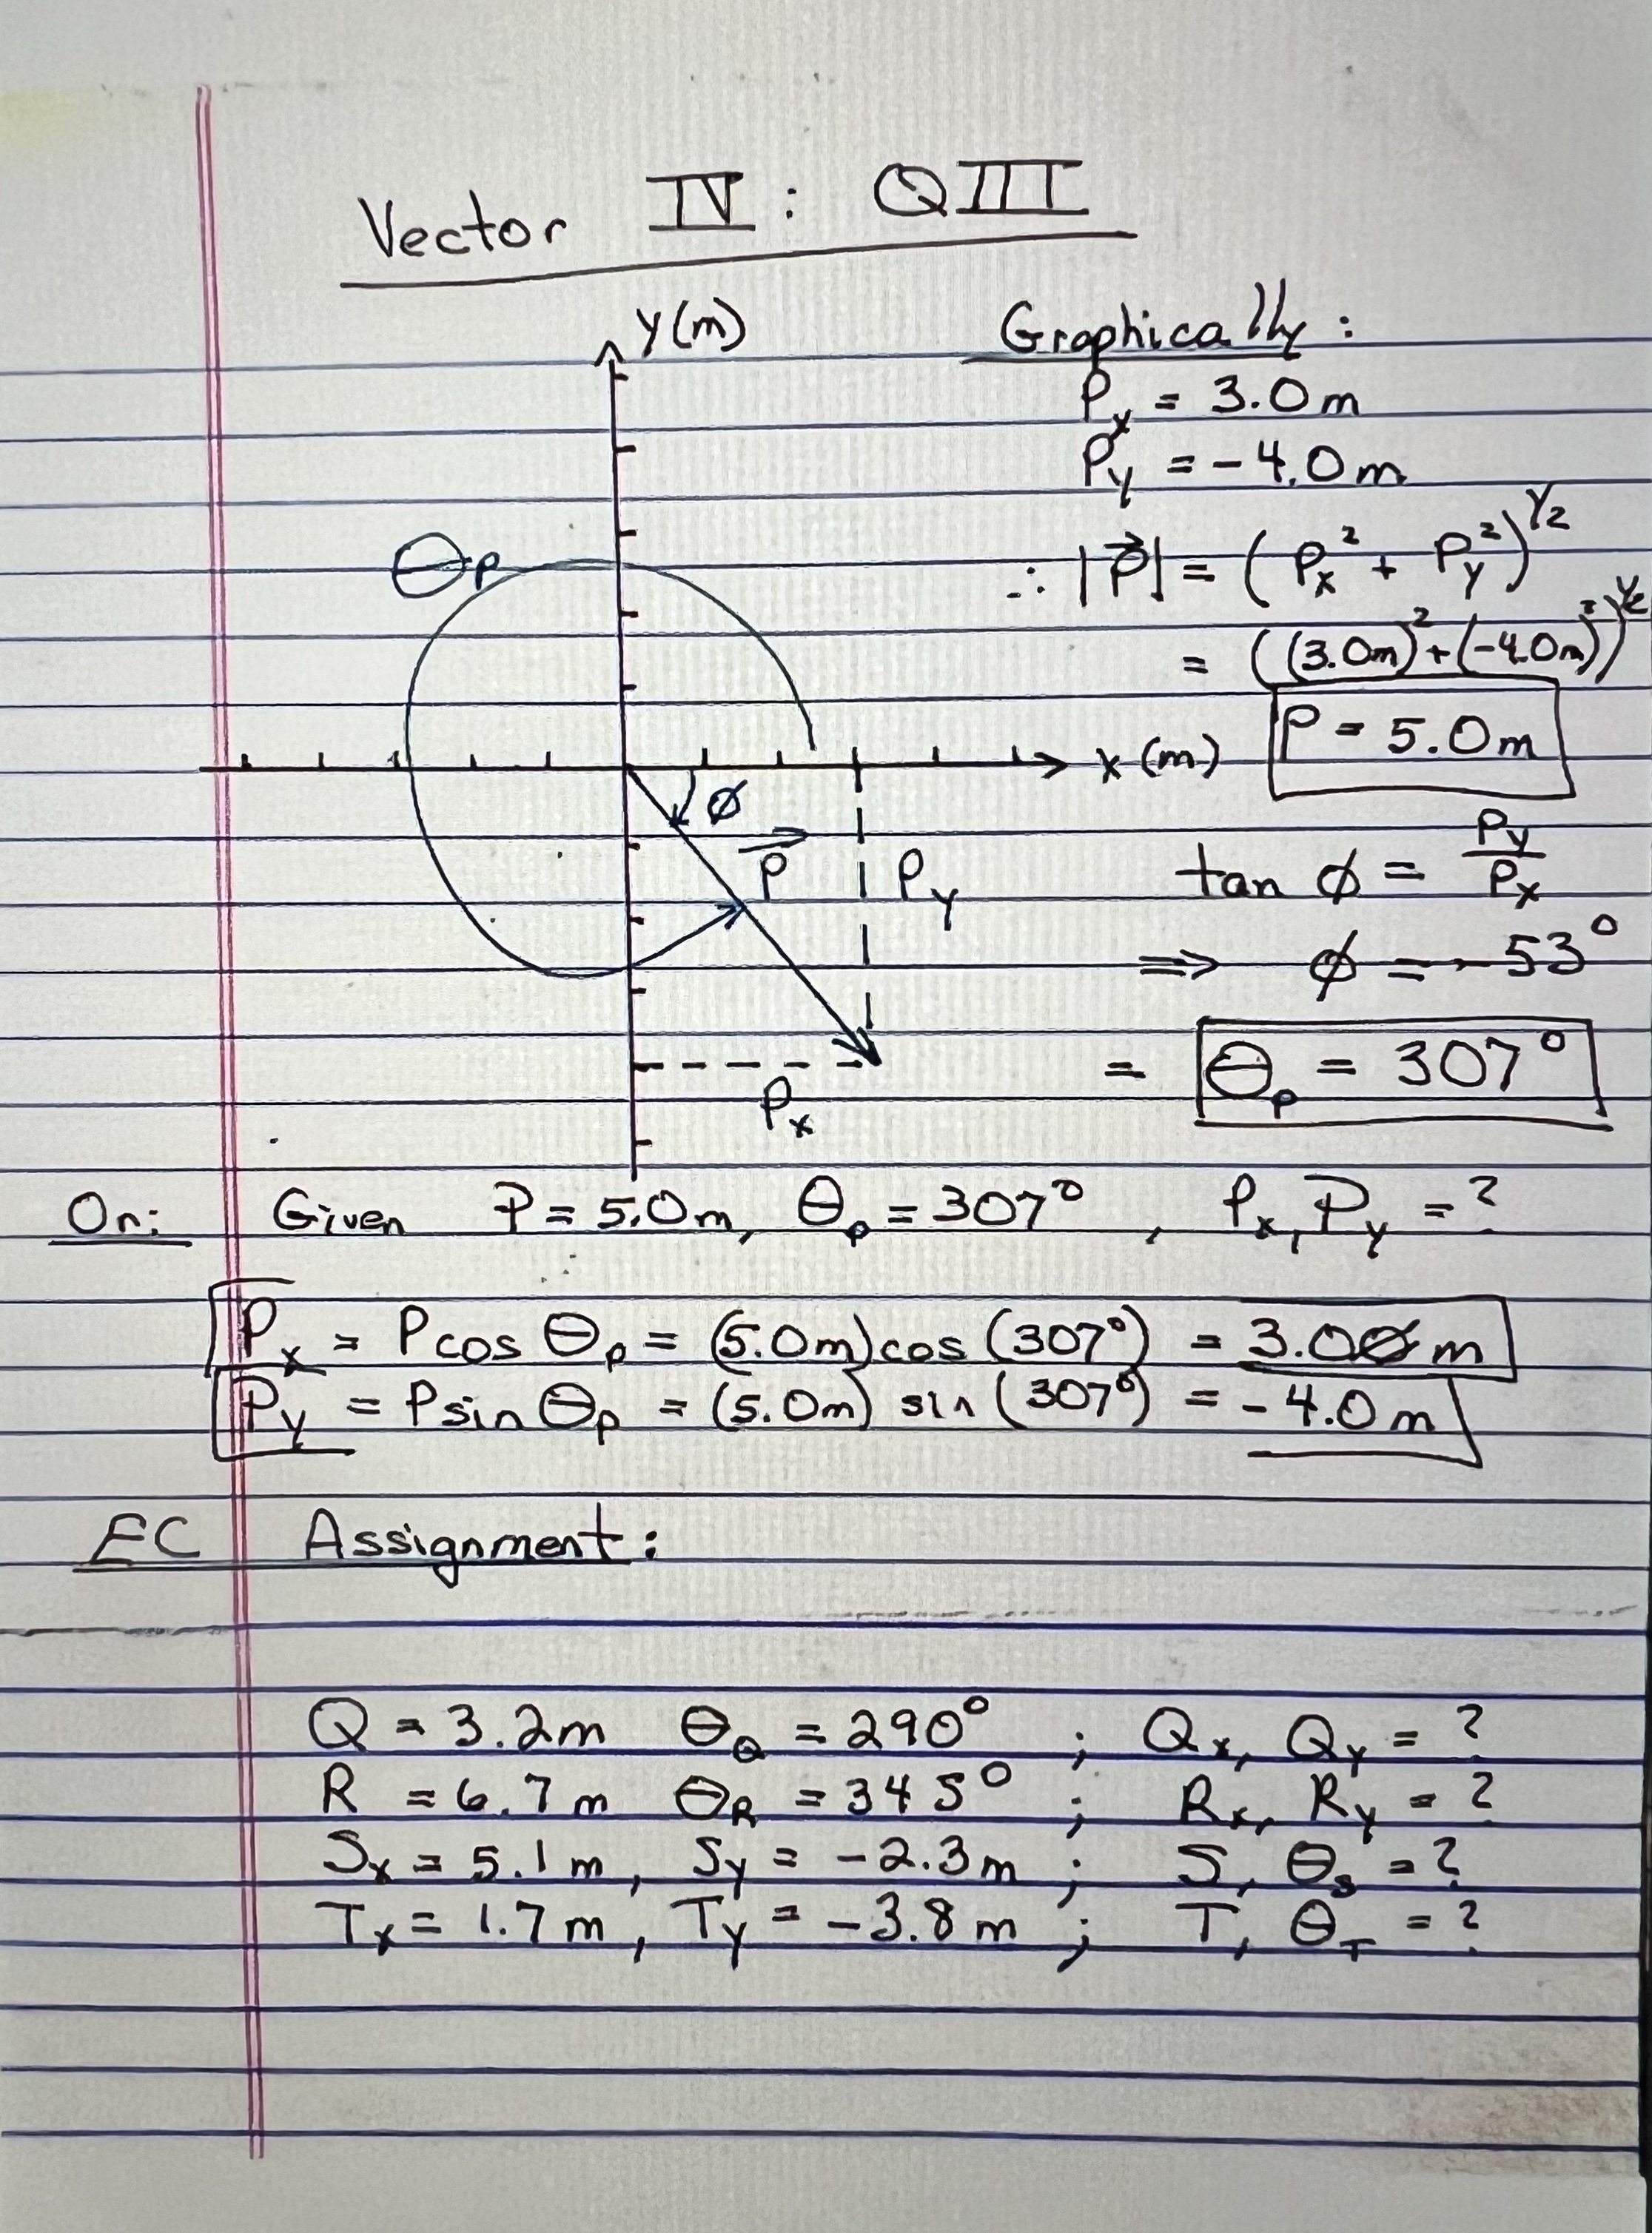 Vector IV: QIII
y(m)
Graphically:
Px = 3.0m
Py = -4.0m
∴ |P⃗| = (Px² + Py²)^1/2
= ((3.0m)² + (-4.0m)²)^1/2
P = 5.0m
Θp
x (m)
φ
P⃗
Py
Px
tan φ = Py/Px
⇒ φ = -53°
= Θp = 307°
Or: Given P = 5.0m, Θp = 307°, Px, Py = ?
Px = P cos Θp = (5.0m) cos (307°) = 3.00 m
Py = P sin Θp = (5.0m) sin (307°) = -4.0 m
EC Assignment:
Q = 3.2m ΘQ = 290° ; Qx, Qy = ?
R = 6.7m ΘR = 345° ; Rx, Ry = ?
Sx = 5.1m, Sy = -2.3m ; S, Θs = ?
Tx = 1.7m, Ty = -3.8m ; T, ΘT = ?